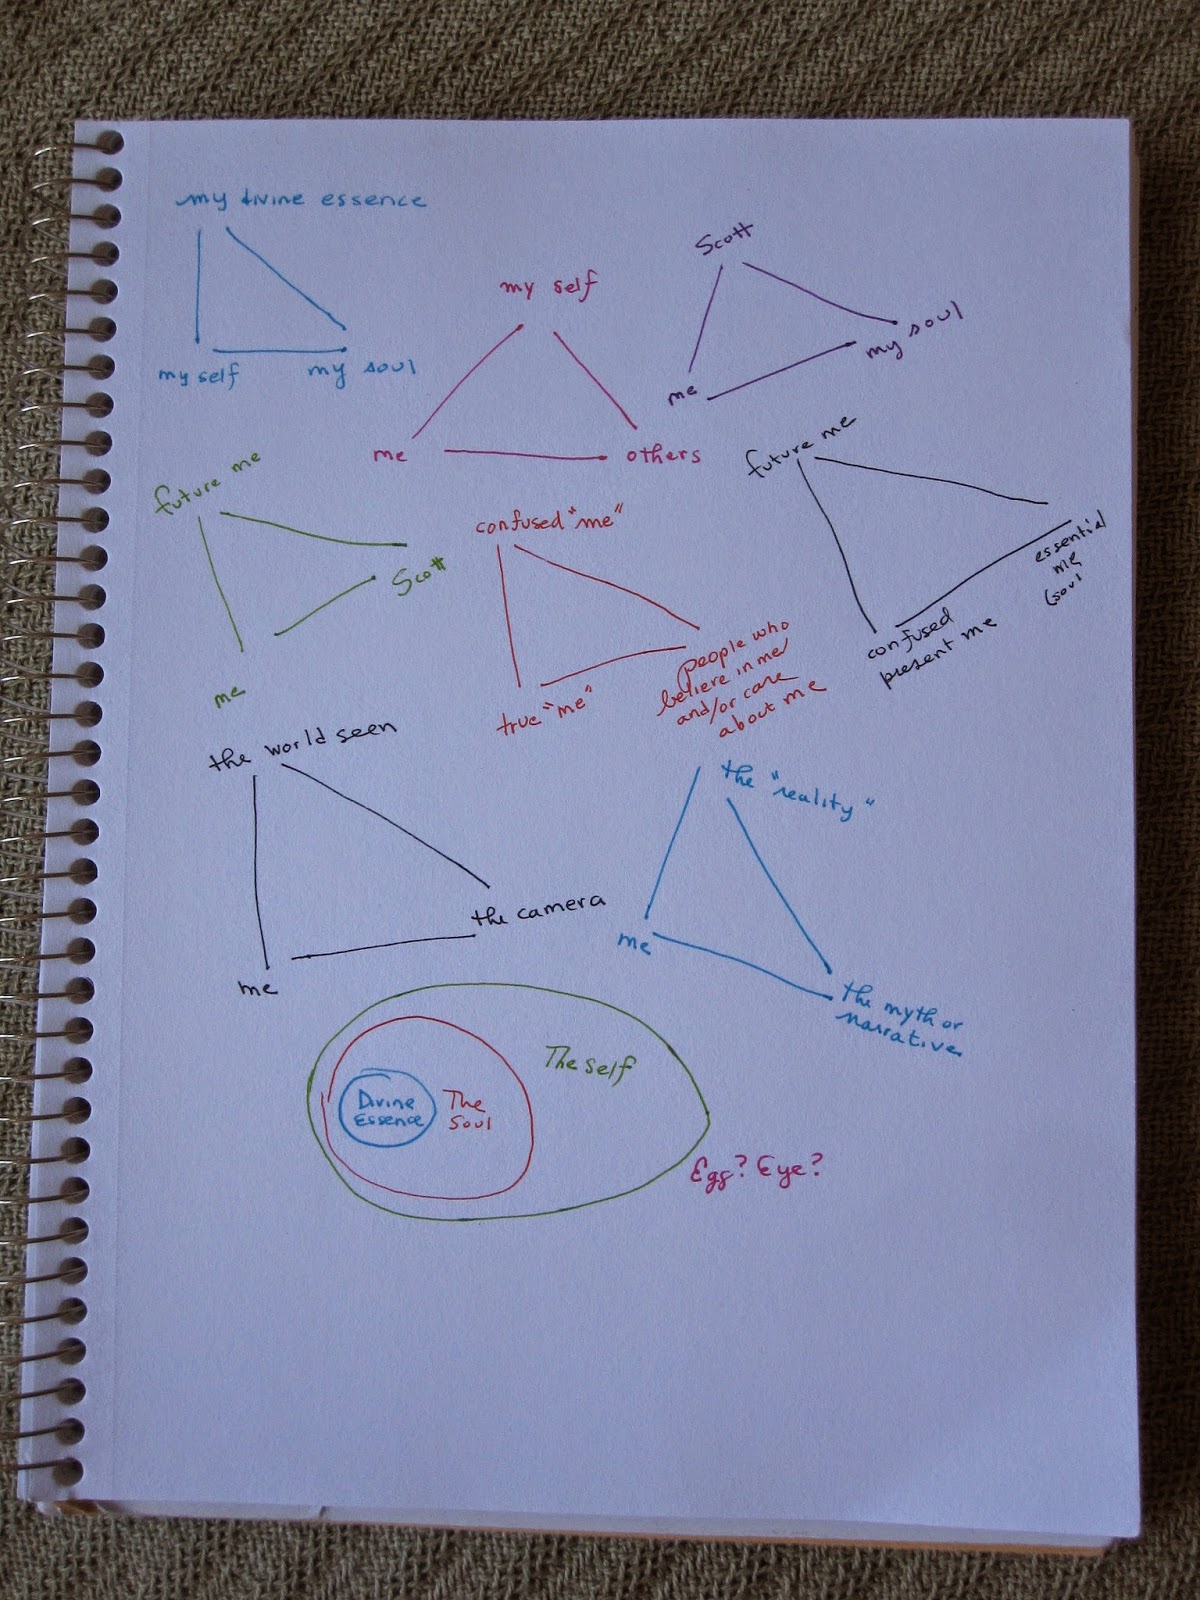 my divine essence
my self
my soul
my self
me
others
Scott
me
my soul
future me
Scott
me
confused "me"
true "me"
people who
believe in me
and/or care
about me
future me
essential
me
(soul
confused
present me
the world seen
the camera
me
the "reality"
me
the myth or
narrative
Divine
Essence
The
Soul
The self
Egg? Eye?